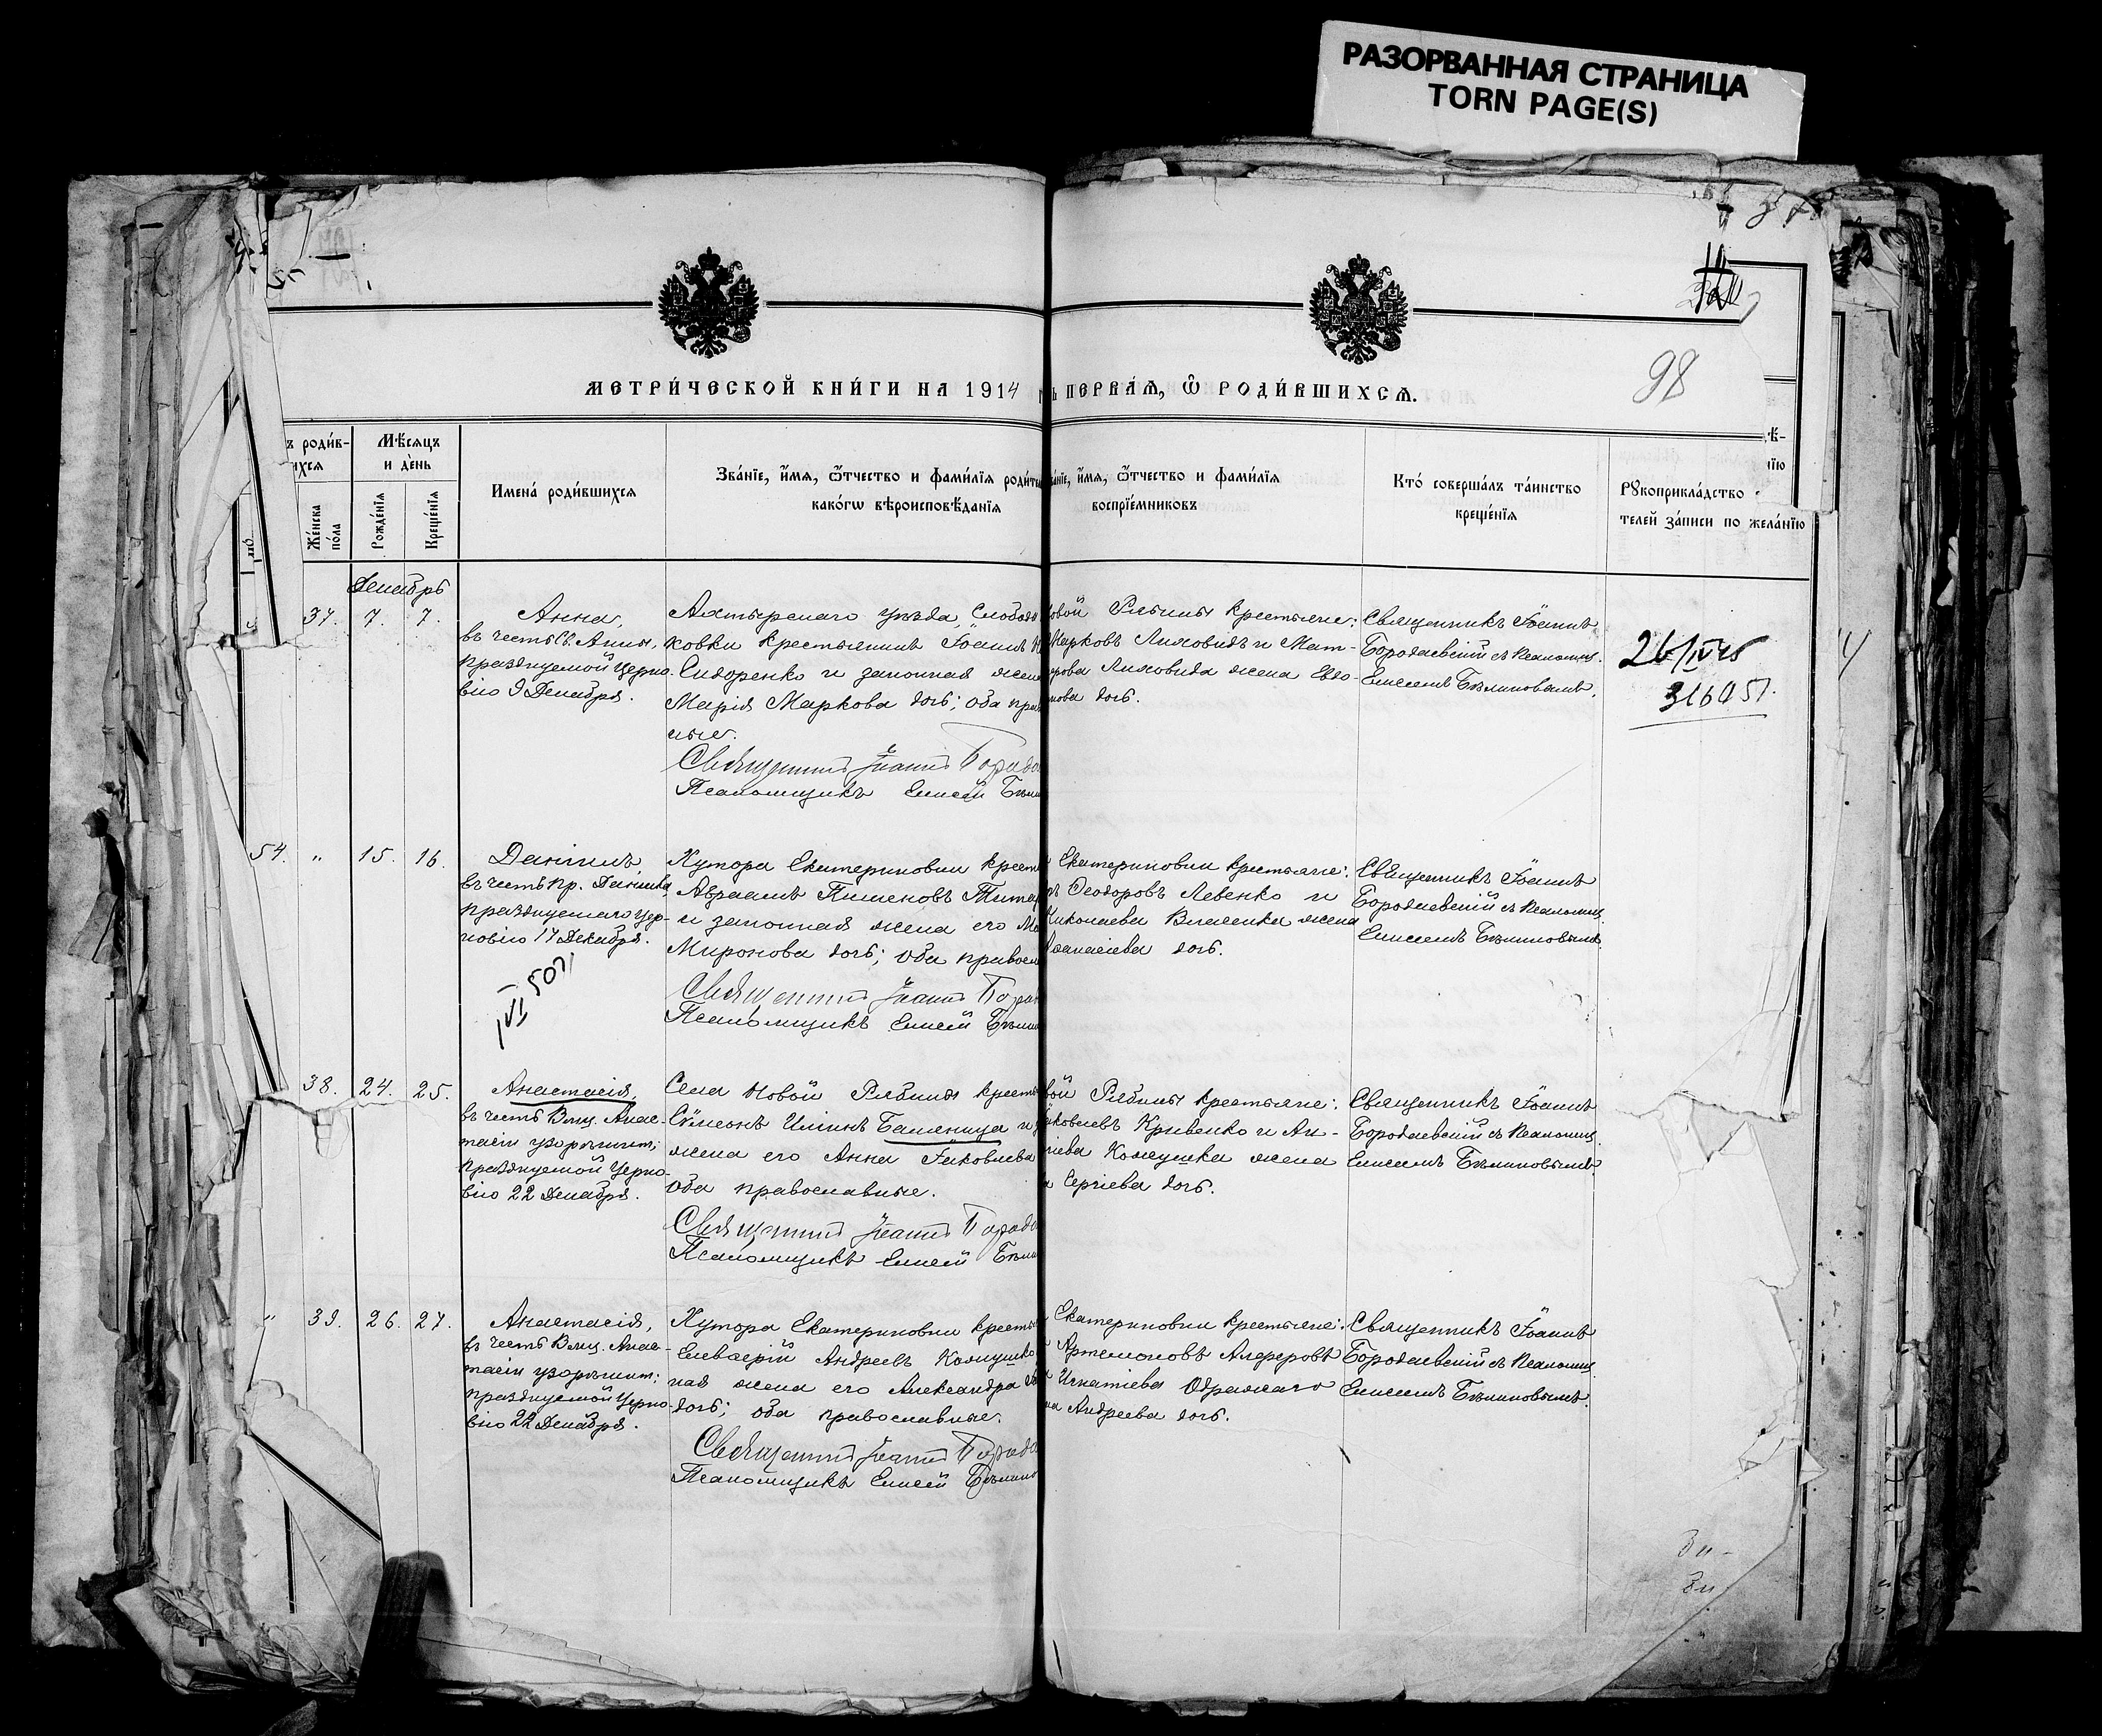 РАЗОРВАННАЯ СТРАНИЦА
TORN PAGE(S)
98
МЕТРИ́ЧЕСКОЙ КНИ́ГИ НА 1914
ПЕРВА́Ѧ, Ѿ РОДИ́ВШИХСѦ.
ъ роди́в-
ихсѧ
Мѣ́сѧцъ
и де́нь
Же́нска
по́ла
Рожде́нїѧ
Креще́нїѧ
Имена̀ роди́вшихсѧ
Зва́нїе, и҆́мѧ, ѻ҆́тчество и фами́лїѧ роди́те
како́гѡ вѣроисповѣ́данїѧ
а́нїе, и҆́мѧ, ѻ҆́тчество и фами́лїѧ
воспрїе́мниковъ
Кто́ соверша́лъ та́инство
креще́нїѧ
Рꙋкоприкла́дство
телей за́писи по жела́нїю
Декабрь
37. 7. 7.
Анна,
въ честь Св. Анны,
празднуемой Церко-
вію 9 Декабря.
Ахтырскаго уѣзда, Слободы
ковки крестьянинъ Іоаннъ
Сидоренко и законная жена
Марія Маркова дочь; оба прав
ные.
Священникъ Іоаннъ Города
Псаломщикъ Елисей Бѣли
овой Рябины крестьяне:
Марковъ Лиховидъ и Мат-
орова Лиховида жена Евдо-
мова дочь.
Священникъ Іоаннъ
Городаевскій съ Псаломщ.
Елисеемъ Бѣлиновымъ.
26/IV 45
316051.
54. " 15. 16.
Даніилъ
въ честь пр. Даніила,
празднуемаго Цер-
ковію 17 Декабря.
Хутора Екатериновки крест
Авраамъ Пименовъ Тита
и законная жена его Ма
Миронова дочь; оба правосл
Священникъ Іоаннъ Города
Псаломщикъ Елисей Бѣли
Екатериновки крестьяне:
ръ Ѳеодоровъ Левенко и
Николаева Власенка жена
Аѳанасіева дочь.
Священникъ Іоаннъ
Городаевскій съ Псаломщ.
Елисеемъ Бѣлиновымъ.
38. 24. 25.
Анастасія,
въ честь Влмц. Анас-
тасіи узорѣшит;
празднуемой Церко-
вію 22 Декабря.
Села Новой Рябины крестья
Сѵмеонъ Илiинъ Баляница и
жена его Анна Іаковлева
оба православные.
Священникъ Іоаннъ Города
Псаломщикъ Елисей Бѣли
вой Рябины крестьяне:
Іаковлевъ Кривенко и Ан-
гіева Кожушка жена
а Сергіева дочь.
Священникъ Іоаннъ
Городаевскій съ Псаломщ.
Елисеемъ Бѣлиновымъ.
" 39. 26. 27.
Анастасія,
въ честь Влмц. Анас-
тасіи узорѣшит:
празднуемой Церко-
вію 22 Декабря.
Хутора Екатериновки крестья
Елевѳерій Андреевъ Кожушко
ная жена его Александра
дочь; оба православные.
Священникъ Іоаннъ Города
Псаломщикъ Елисей Бѣлино
Екатериновки крестьяне:
Артемоновъ Алферовъ
Игнатіева Одражаго
на Андреева дочь.
Священникъ Іоаннъ
Городаевскій съ Псаломщ.
Елисеемъ Бѣлиновымъ.